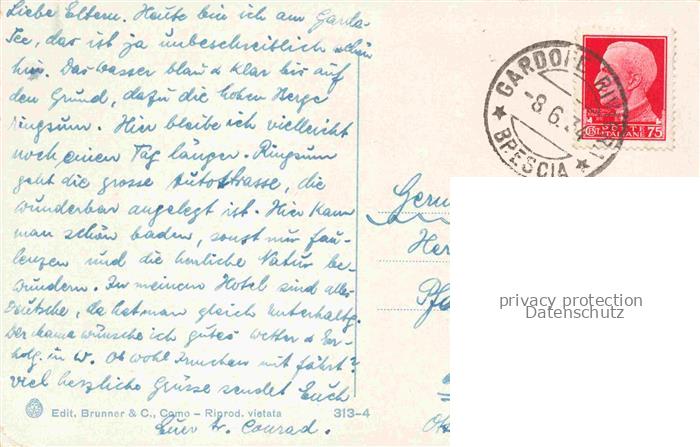 Liebe Eltern. Heute bin ich am Garda-
See, das ist ja unbeschreiblich schön
hier. Das Wasser blau & klar bis auf
den Grund, dazu die hohen Berge
ringsum. Hier bleibe ich vielleicht
noch einen Tag länger. Ringsum
geht die grosse Autostrasse, die
wunderbar angelegt ist. Hier kann
man schön baden, sonst nur fau-
lenzen und die herrliche Natur be-
wundern. In meinem Hotel sind alles
Deutsche, da hat man gleich Unterhaltg.
Der Mama wünsche ich gutes Wetter & Er-
holg. in W. Ob wohl mit fährt?
Viel herzliche Grüsse sendet Euch
Euer tr. Conrad.
Edit. Brunner & C., Como - Riprod. vietata 313-4
GARDONE RIVIERA
-8.6.3
BRESCIA
POSTE
ITALIANE
75
Germ
Her
privacy protection
Datenschutz